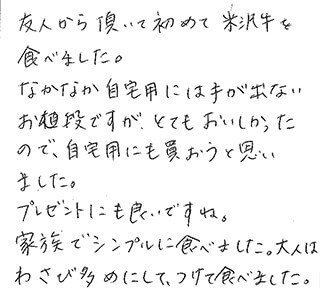 友人から頂いて初めて米沢牛を
食べました。
なかなか自宅用には手が出ない
お値段ですが、とてもおいしかった
ので、自宅用にも買おうと思い
ました。
プレゼントにも良いですね。
家族でシンプルに食べました。大人は
わさび多めにして、つけて食べました。